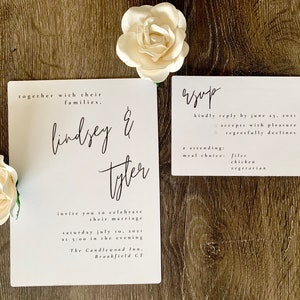 together with their
families,
lindsey &
tyler
invite you to celebrate
their marriage
saturday july 10, 2021
at 5:00 in the evening
The Candlewood Inn,
Brookfield CT
rsvp
kindly reply by june 25, 2021
accepts with pleasure
regretfully declines
# attending:
meal choice: filet
chicken
vegetarian